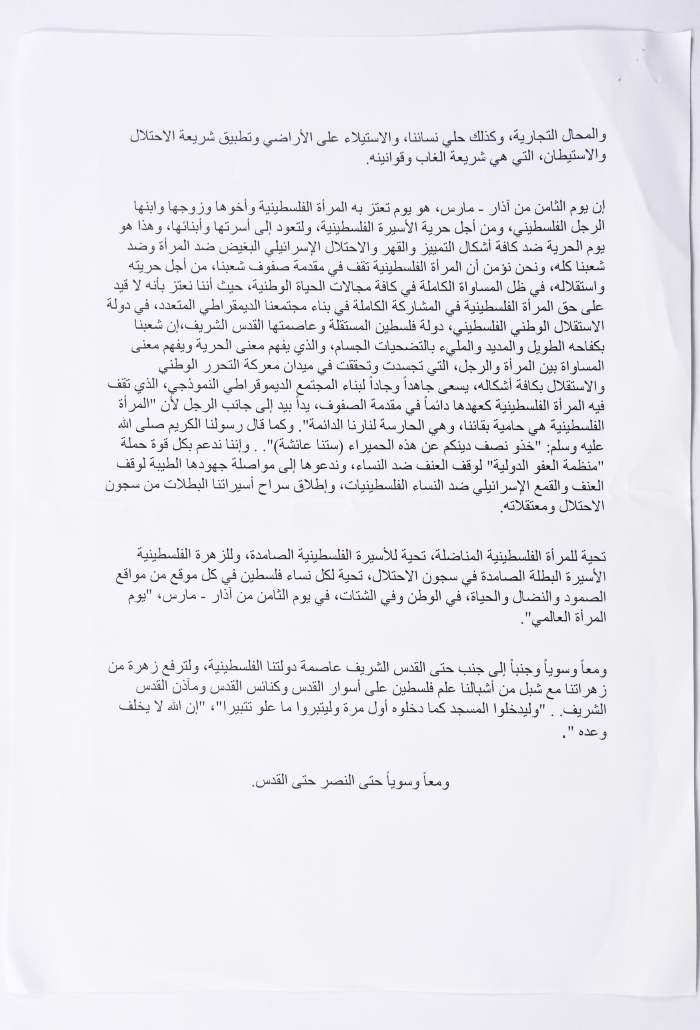 والمحال التجارية، وكذلك حلي نسائنا، والاستيلاء على الأراضي وتطبيق شريعة الاحتلال
والاستيطان، التي هي شريعة الغاب وقوانينه.
إن يوم الثامن من آذار - مارس، هو يوم تعتز به المرأة الفلسطينية وأخوها وزوجها وابنها
الرجل الفلسطيني، ومن أجل حرية الأسيرة الفلسطينية، ولتعود إلى أسرتها وأبنائها، وهذا هو
يوم الحرية ضد كافة أشكال التمييز والقهر والاحتلال الإسرائيلي البغيض ضد المرأة وضد
شعبنا كله، ونحن نؤمن أن المرأة الفلسطينية تقف في مقدمة صفوف شعبنا، من أجل حريته
واستقلاله، في ظل المساواة الكاملة في كافة مجالات الحياة الوطنية، حيث أننا نعتز بأنه لا قيد
على حق المرأة الفلسطينية في المشاركة الكاملة في بناء مجتمعنا الديمقراطي المتعدد، في دولة
الاستقلال الوطني الفلسطيني، دولة فلسطين المستقلة وعاصمتها القدس الشريف،إن شعبنا
بكفاحه الطويل والمديد والمليء بالتضحيات الجسام، والذي يفهم معنى الحرية ويفهم معنى
المساواة بين المرأة والرجل، التي تجسدت وتحققت في ميدان معركة التحرر الوطني
والاستقلال بكافة أشكاله، يسعى جاهداً وجاداً لبناء المجتمع الديموقراطي النموذجي، الذي تقف
فيه المرأة الفلسطينية كعهدها دائماً في مقدمة الصفوف، يداً بيد إلى جانب الرجل لأن "المرأة
الفلسطينية هي حامية بقائنا، وهي الحارسة لنارنا الدائمة". وكما قال رسولنا الكريم صلى الله
عليه وسلم: "خذو نصف دينكم عن هذه الحميراء (ستنا عائشة)". . وإننا ندعم بكل قوة حملة
"منظمة العفو الدولية" لوقف العنف ضد النساء، وندعوها إلى مواصلة جهودها الطيبة لوقف
العنف والقمع الإسرائيلي ضد النساء الفلسطينيات، وإطلاق سراح أسيراتنا البطلات من سجون
الاحتلال ومعتقلاته.
تحية للمرأة الفلسطينية المناضلة، تحية للأسيرة الفلسطينية الصامدة، وللزهرة الفلسطينية
الأسيرة البطلة الصامدة في سجون الاحتلال، تحية لكل نساء فلسطين في كل موقع من مواقع
الصمود والنضال والحياة، في الوطن وفي الشتات، في يوم الثامن من آذار - مارس، "يوم
المرأة العالمي".
ومعاً وسوياً وجنباً إلى جنب حتى القدس الشريف عاصمة دولتنا الفلسطينية، ولترفع زهرة من
زهراتنا مع شبل من أشبالنا علم فلسطين على أسوار القدس وكنائس القدس ومآذن القدس
الشريف. . "وليدخلوا المسجد كما دخلوه أول مرة وليتبروا ما علو تتبيرا"، "إن الله لا يخلف
وعده ".
ومعاً وسوياً حتى النصر حتى القدس.